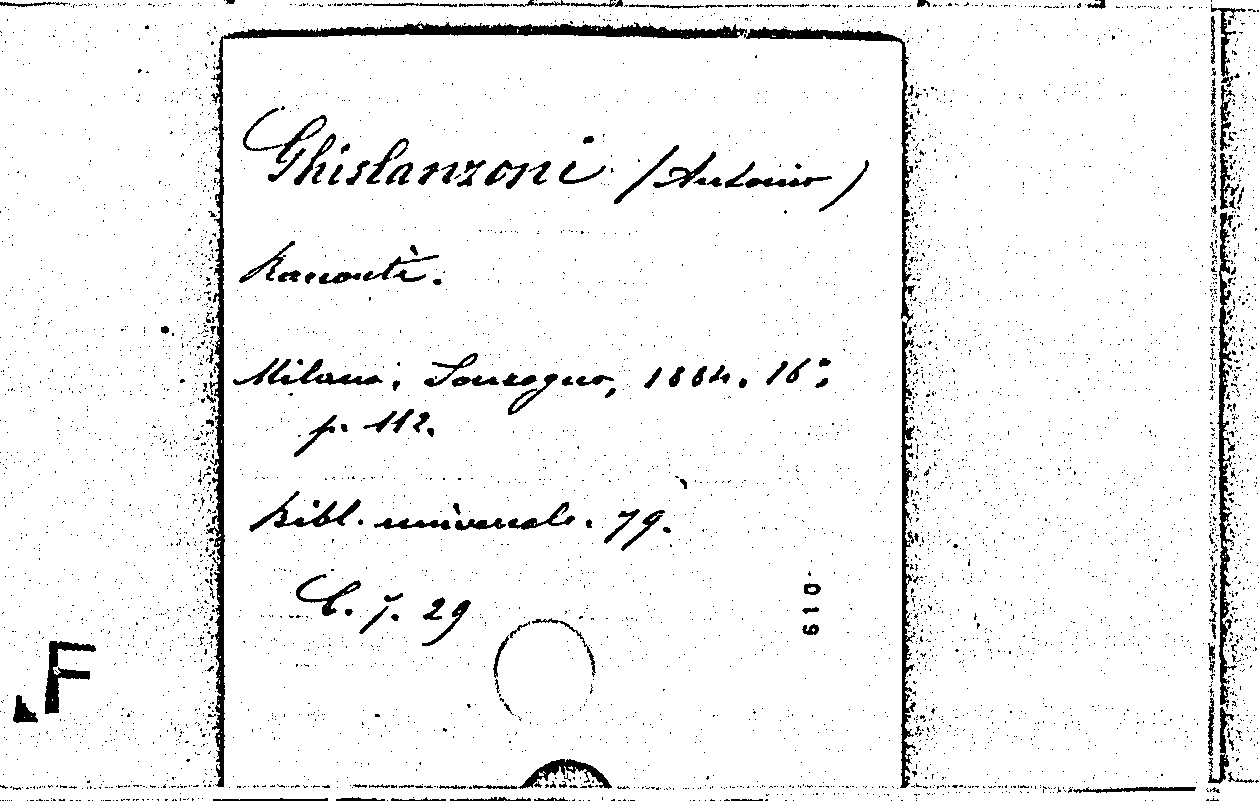 Ghislanzoni (Antonio)
Racconti.
Milano, Sonzogno, 1884. 16°;
p. 112.
Bibl. universale. 79.
C. 7. 29
019
F